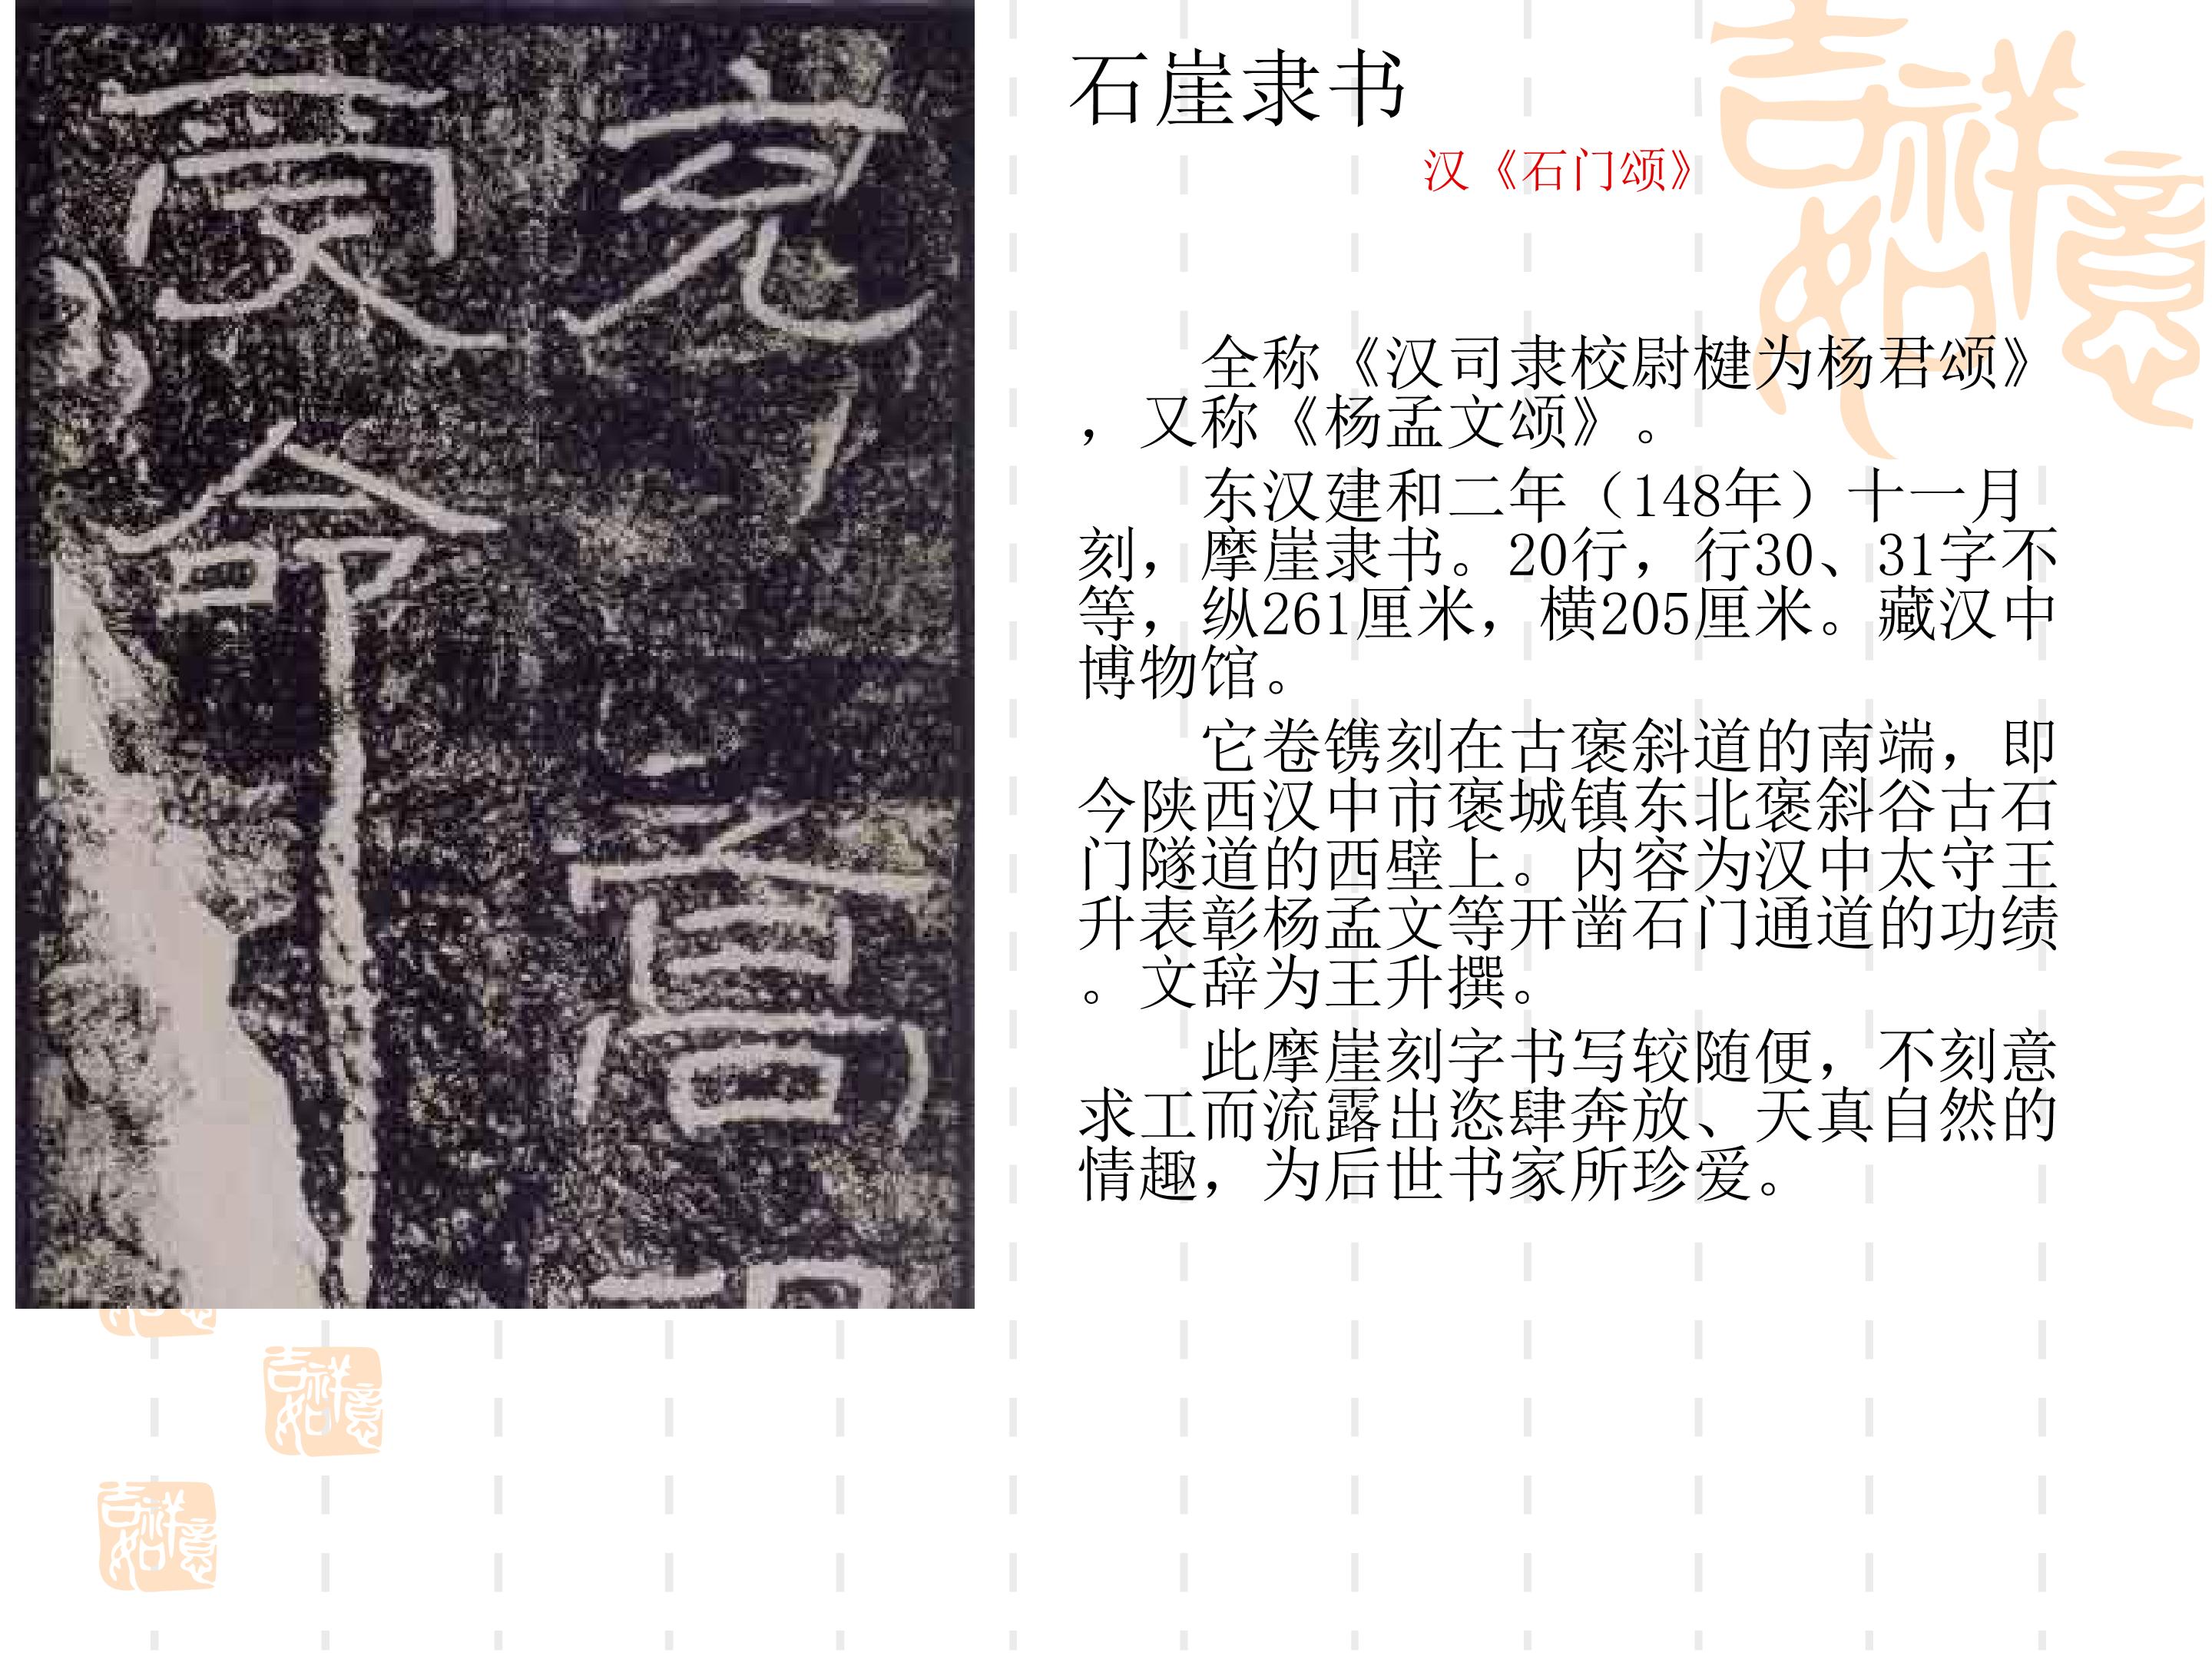 石崖隶书
汉《石门颂》
全称《汉司隶校尉楗为杨君颂》
，又称《杨孟文颂》。
东汉建和二年（148年）十一月
刻，摩崖隶书。20行，行30、31字不
等，纵261厘米，横205厘米。藏汉中
博物馆。
它卷镌刻在古褒斜道的南端，即
今陕西汉中市褒城镇东北褒斜谷古石
门隧道的西壁上。内容为汉中太守王
升表彰杨孟文等开凿石门通道的功绩
。文辞为王升撰。
此摩崖刻字书写较随便，不刻意
求工而流露出恣肆奔放、天真自然的
情趣，为后世书家所珍爱。
高
受命
吉祥如意
吉祥如意
吉祥如意